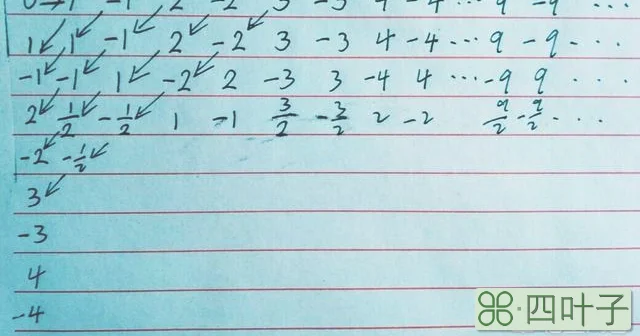 0 → 1 -1 2 -2 3 -3 4 -4 ... 9 -9 ...
1 1 -1 2 -2 3 -3 4 -4 ... 9 -9 ...
-1 -1 1 -2 2 -3 3 -4 4 ... -9 9 ...
2 1/2 -1/2 1 -1 3/2 -3/2 2 -2 9/2 -9/2 ...
-2 -1/2
3
-3
4
-4
四叶子